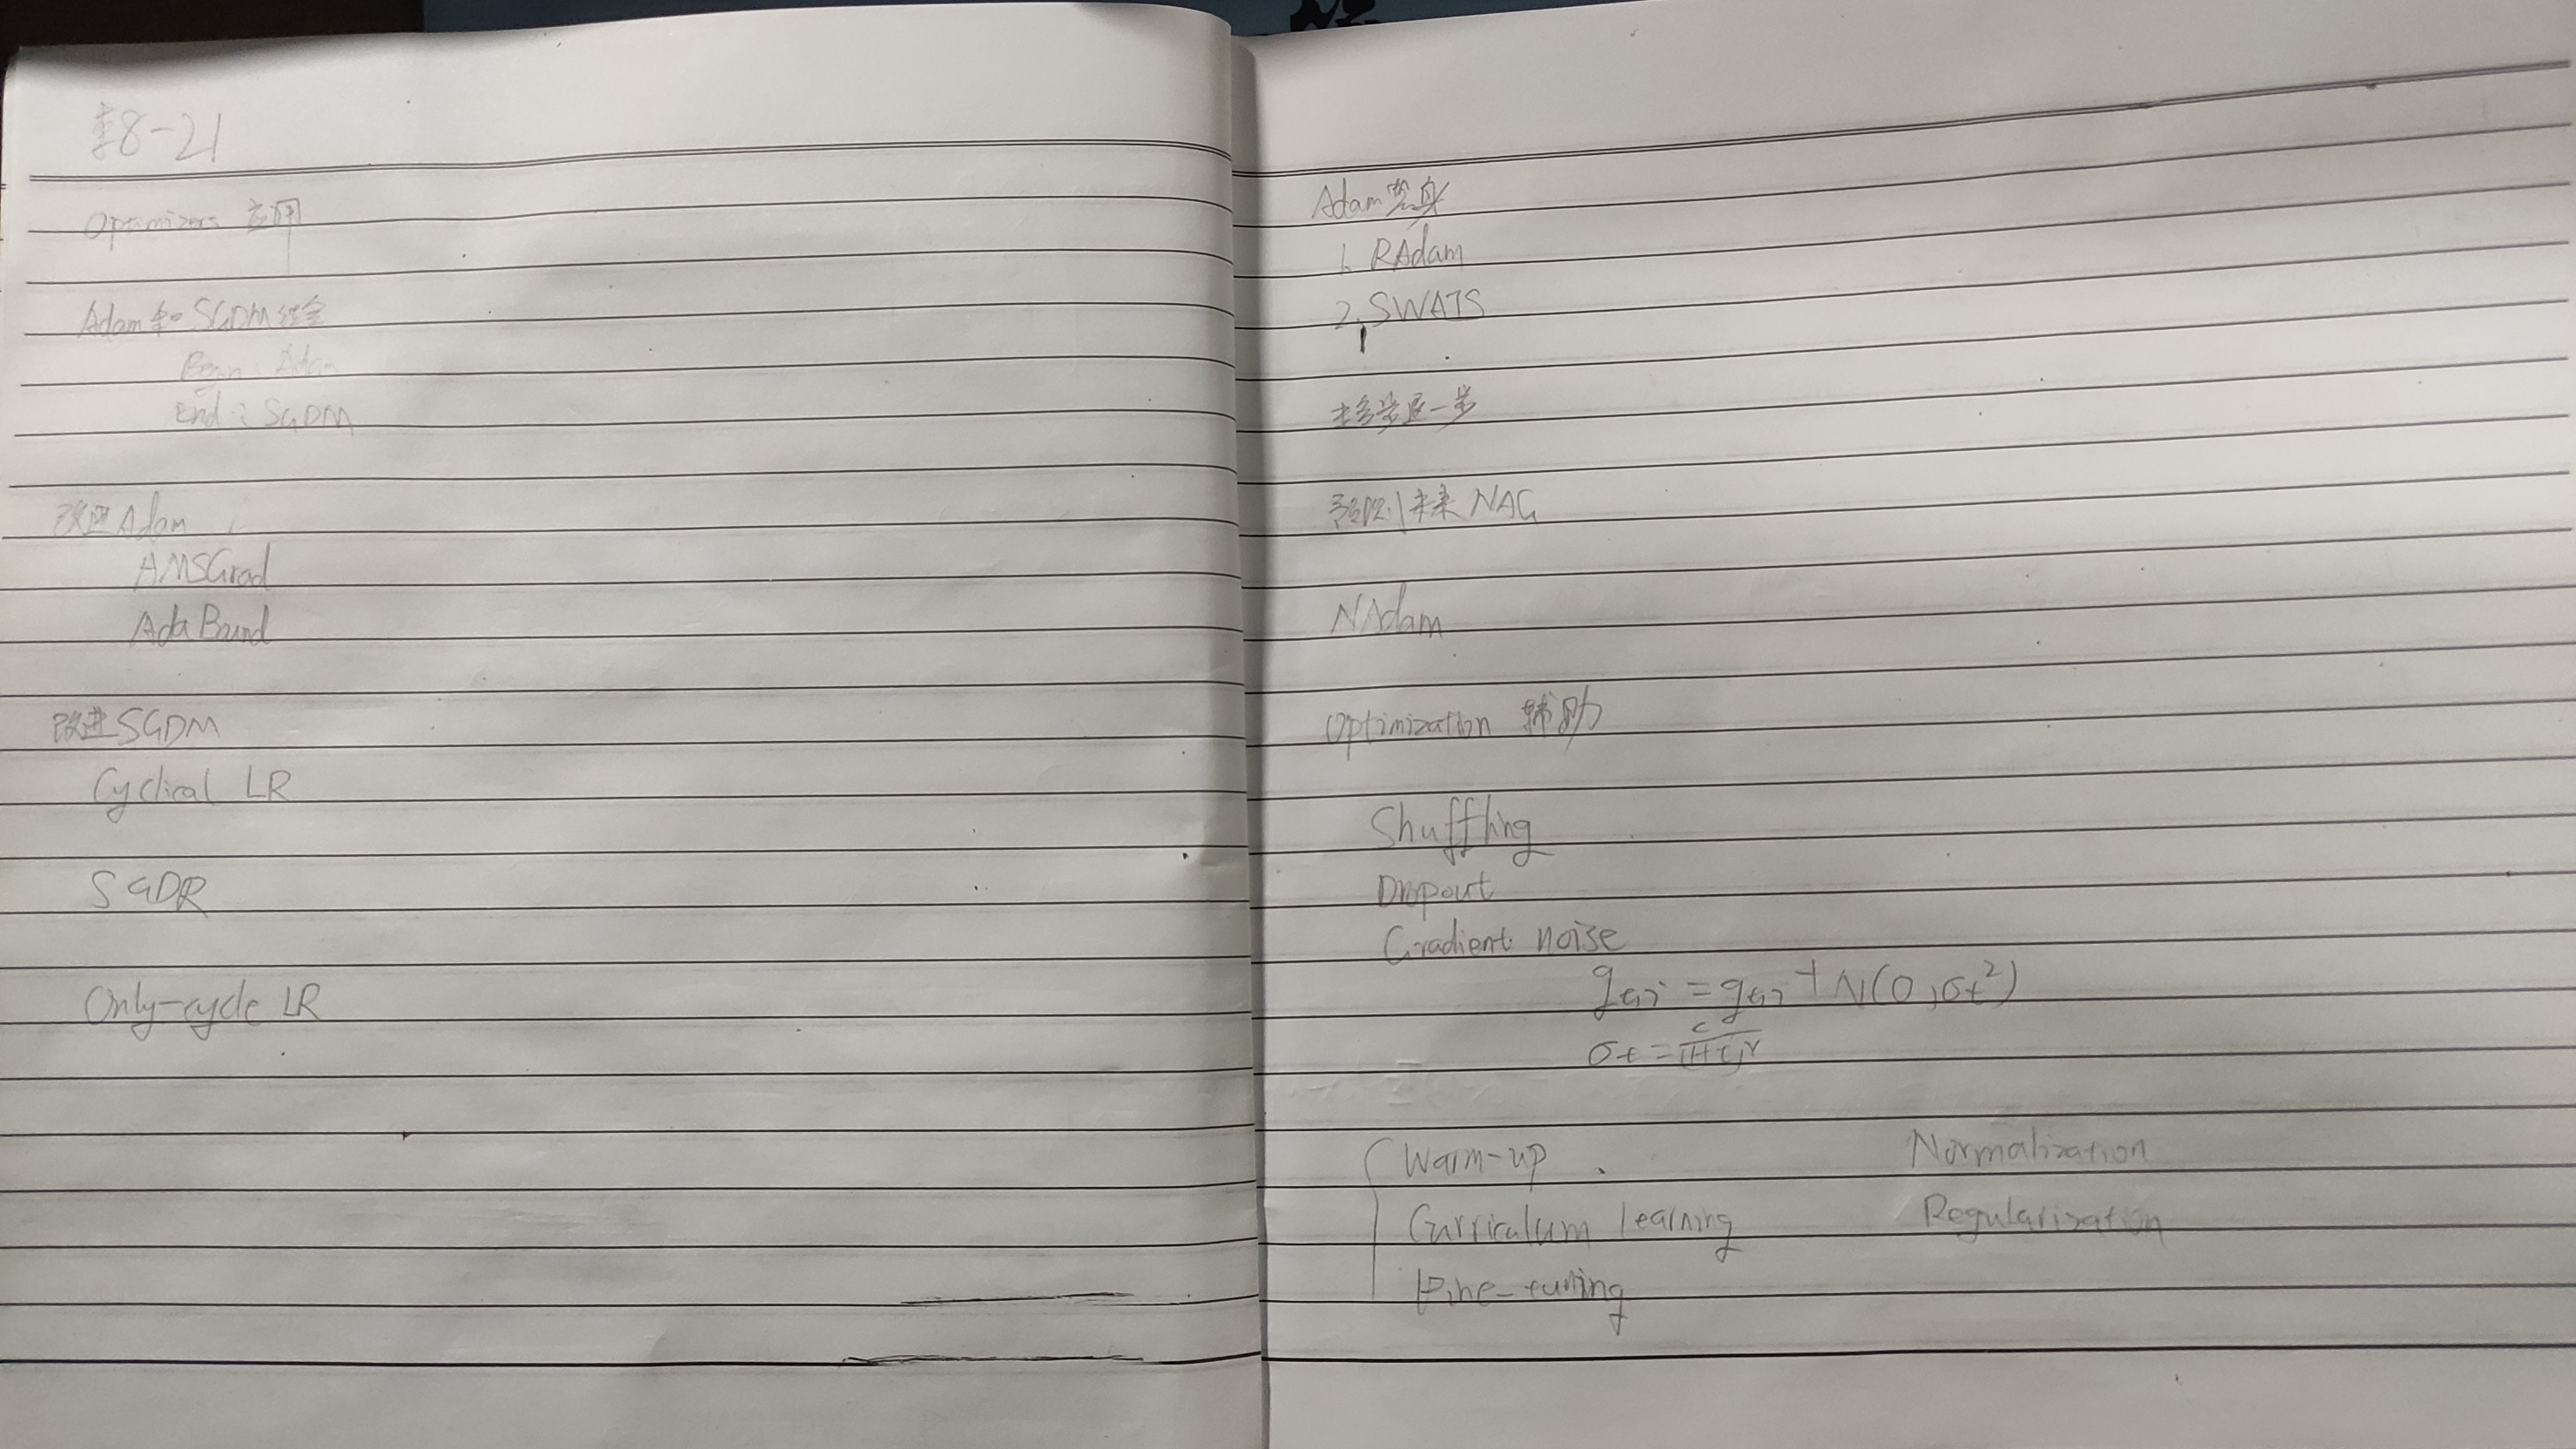 李8-21
Optimizers 应用
Adam和SGDM结合
Begin: Adam
End: SGDM
改进Adam
AMSGrad
AdaBound
改进SGDM
Cyclical LR
SGDR
Only-cycle LR
Adam热身
1. RAdam
2. SWATS
走多步退一步
预测未来 NAG
NAdam
Optimization 辅助
Shuffling
Dropout
Gradient noise
g_{t,i} = g_{t,i} + N(0, σ_t²)
σ_t = c/(1+t)^γ
Warm-up
Curriculum learning
Fine-tuning
Normalization
Regularization